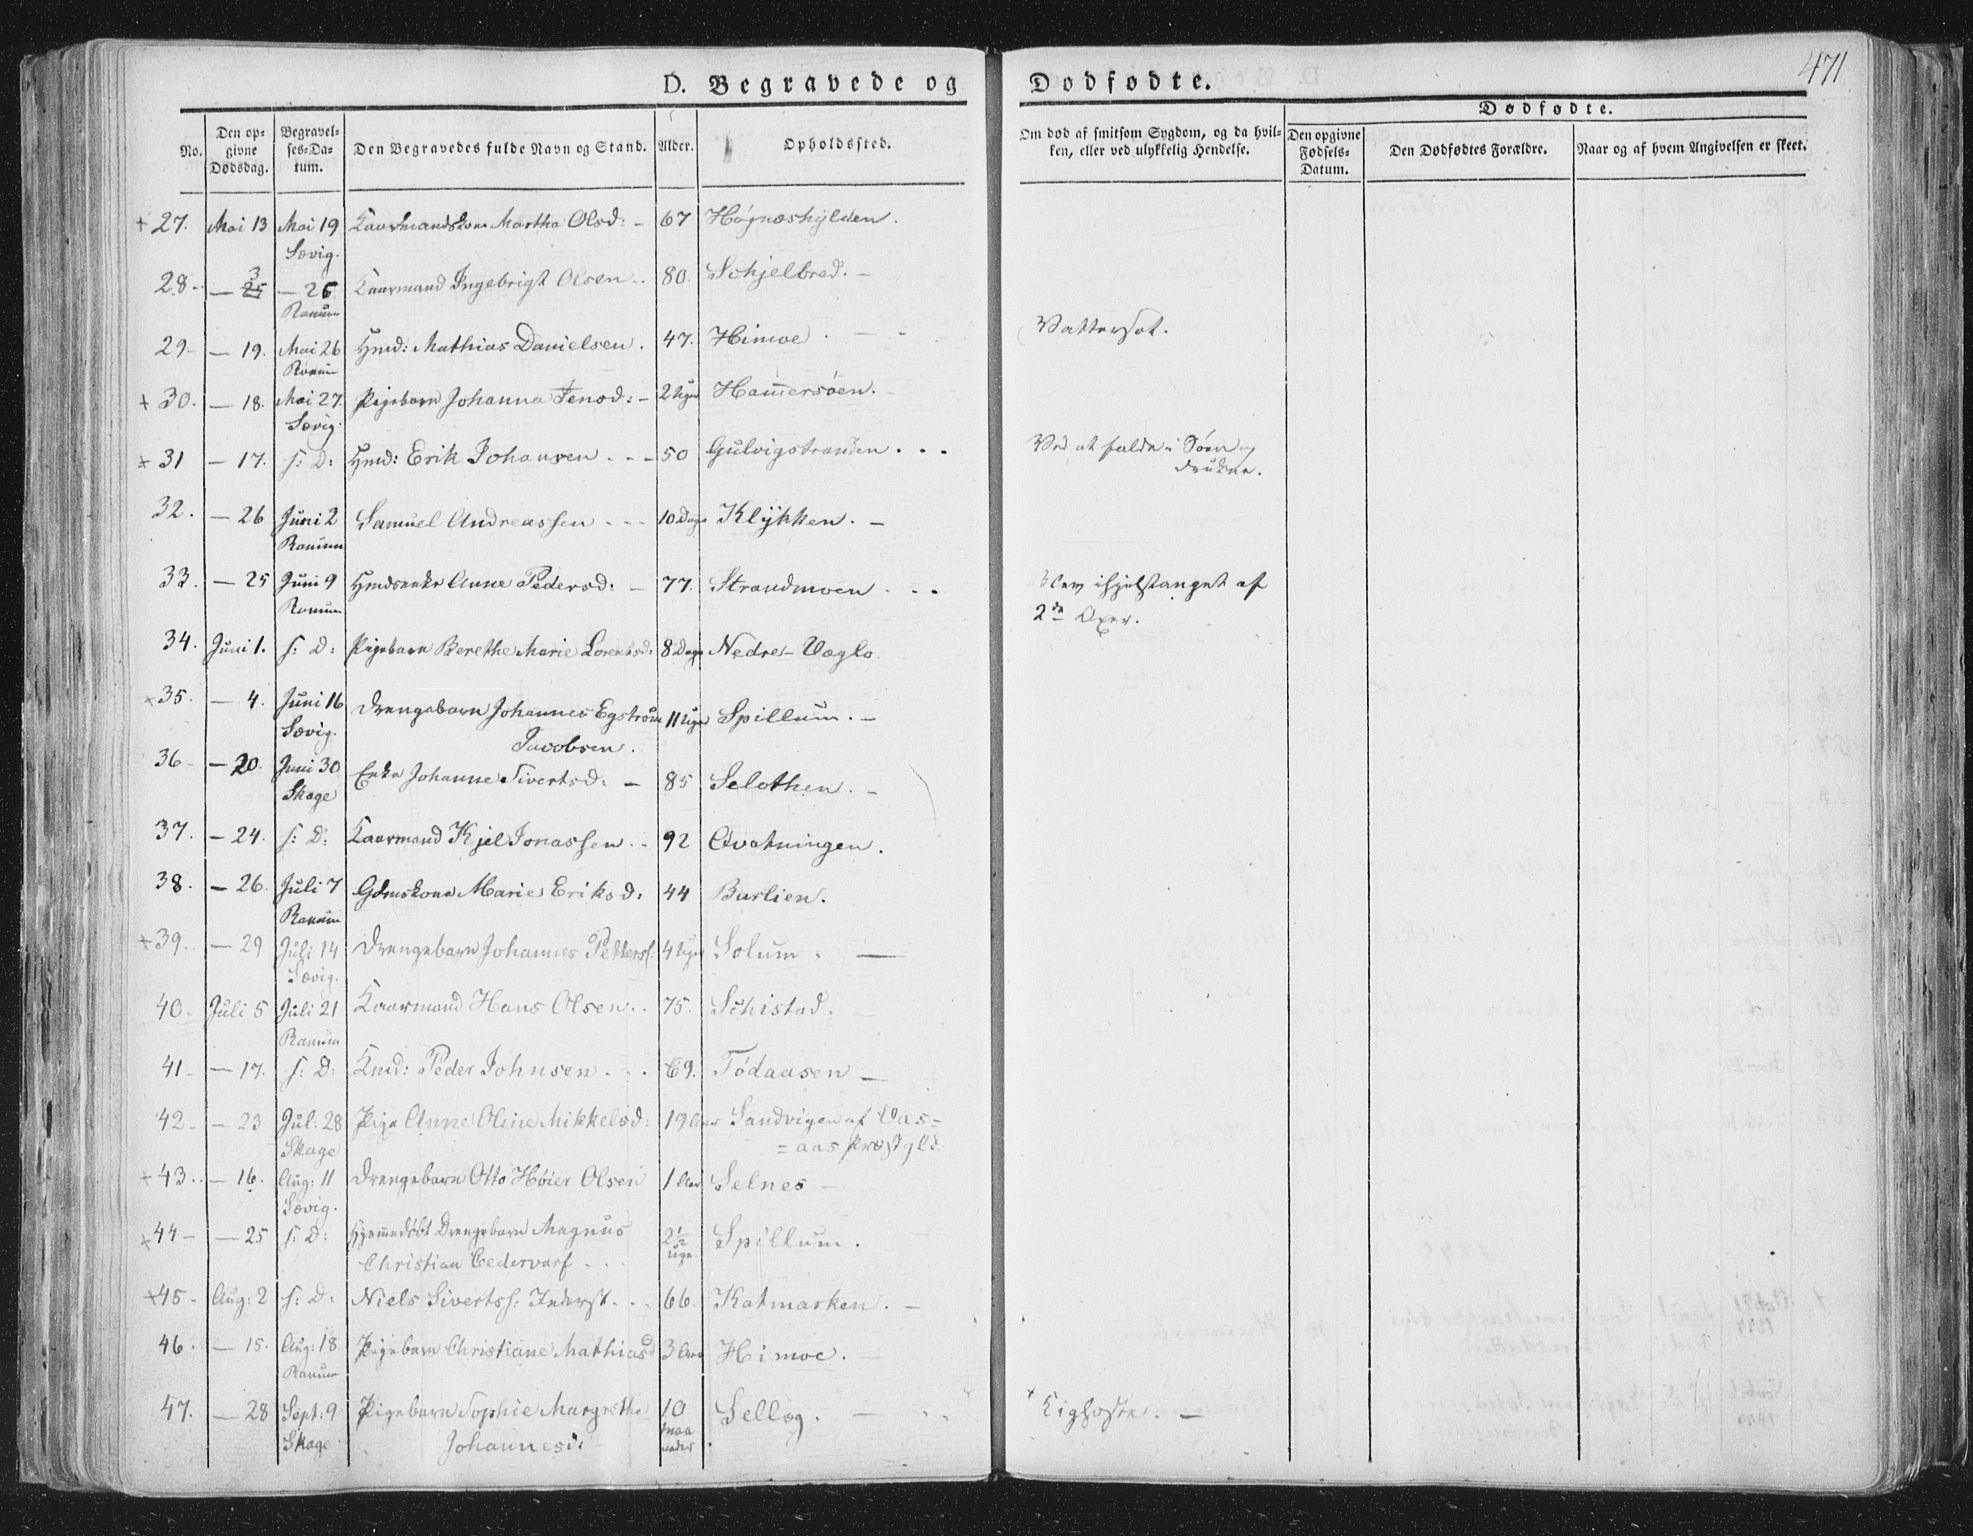 471
D. Begravede og Dødfødte.
No.
Den opgivne Dødsdag.
Begravelses-Datum.
Den Begravedes fulde Navn og Stand.
Alder.
Opholdssted.
Om død af smitsom Sygdom, og da hvilken, eller ved ulykkelig Hendelse.
Dødfødte.
Den opgivne Fødsels-Datum.
Den Dødfødtes Forældre.
Naar og af hvem Angivelsen er skeet.
+ 27. Mai 13 Mai 19 Kaarmandskone Martha Olsd: - 67 Høgnæshylden.
Sævig.
28. - 3 - 26 Kaarmand Ingebrigt Olsen. . 80. Schjelbred. -
Ranum
29 - 19. Mai 26 Hmd: Mathias Danielsen. 47. Himoe. Vattersot.
Ranum
+ 30. - 18. Mai 27 Pigebarn Johanna Jensd: - 2 Uger Ham̅ersøen.
Sævig.
+ 31 - 17. s: D: Hmd: Erik Johansen . . - 50 Gulvigstranden . . . Ved at falde i Søen og
drukne.
32. - 26 Juni 2 Samuel Andreassen - - - 10 Dage Klykken. -
Ranum
33. - 25 Juni 9 Hmdsenke Anne Pedersd: - 77. Strandmoen . . . Blev ihjelstanget af
Ranum 2de Oxer.
34. Juni 1. s: D: Pigebarn Berethe Marie Lorentsd: 8 Dage Nedre-Væglo.
+ 35. - 4. Juni 16 Drengebarn Johannes Egstrøm 11 Uger Spillum. -
Sævig. Jacobsen.
36 - 20. Juni 30 Enke Johanne Sivertsd: - 85 Selothen. -
Skage
37. - 24. s: D: Kaarmand Kjel Jonassen . . 92 Qvatningen.
38. - 26. Juli 7 Gdmskone Marie Eriksd: 44 Barlien.
Ranum
+ 39. - 29 Juli 14 Drengebarn Johannes Petters: 4 Uger Solum. -
Sævig.
40. Juli 5 Juli 21 Kaarmand Hans Olsen. . 75. Schistad.
Ranum
41 - 17. s: D: Kmd: Peder Johnsen . . . 69. Tødaasen -
42 - 23 Jul: 28 Pige Anne Oline Mikkelsd: 19 Aar Sandvigen af Vas=
Skage =aas Præstgld.
+ 43. - 16. Aug: 11 Drengebarn Otto Høier Olsen 1 Aar Selnes -
Sævig.
+ 44 - 25 s: D: Hjem̅edøbt Drengebarn Magnus 2½ Spillum.
Christian Cedervarf . . . uge.
+ 45 - Aug: 2 s: D: Niels Siverts: Inderst. . . 66. Katmarken. -
46. - 15. Aug: 18 Pigebarn Christiane Mathiasd 3 Aar Himoe.
Ranum
47. - 28 Sept: 9 Pigebarn Sophie Margrethe 10 Selløg. - Kighoste. -
Skage Johannesd: maaneder